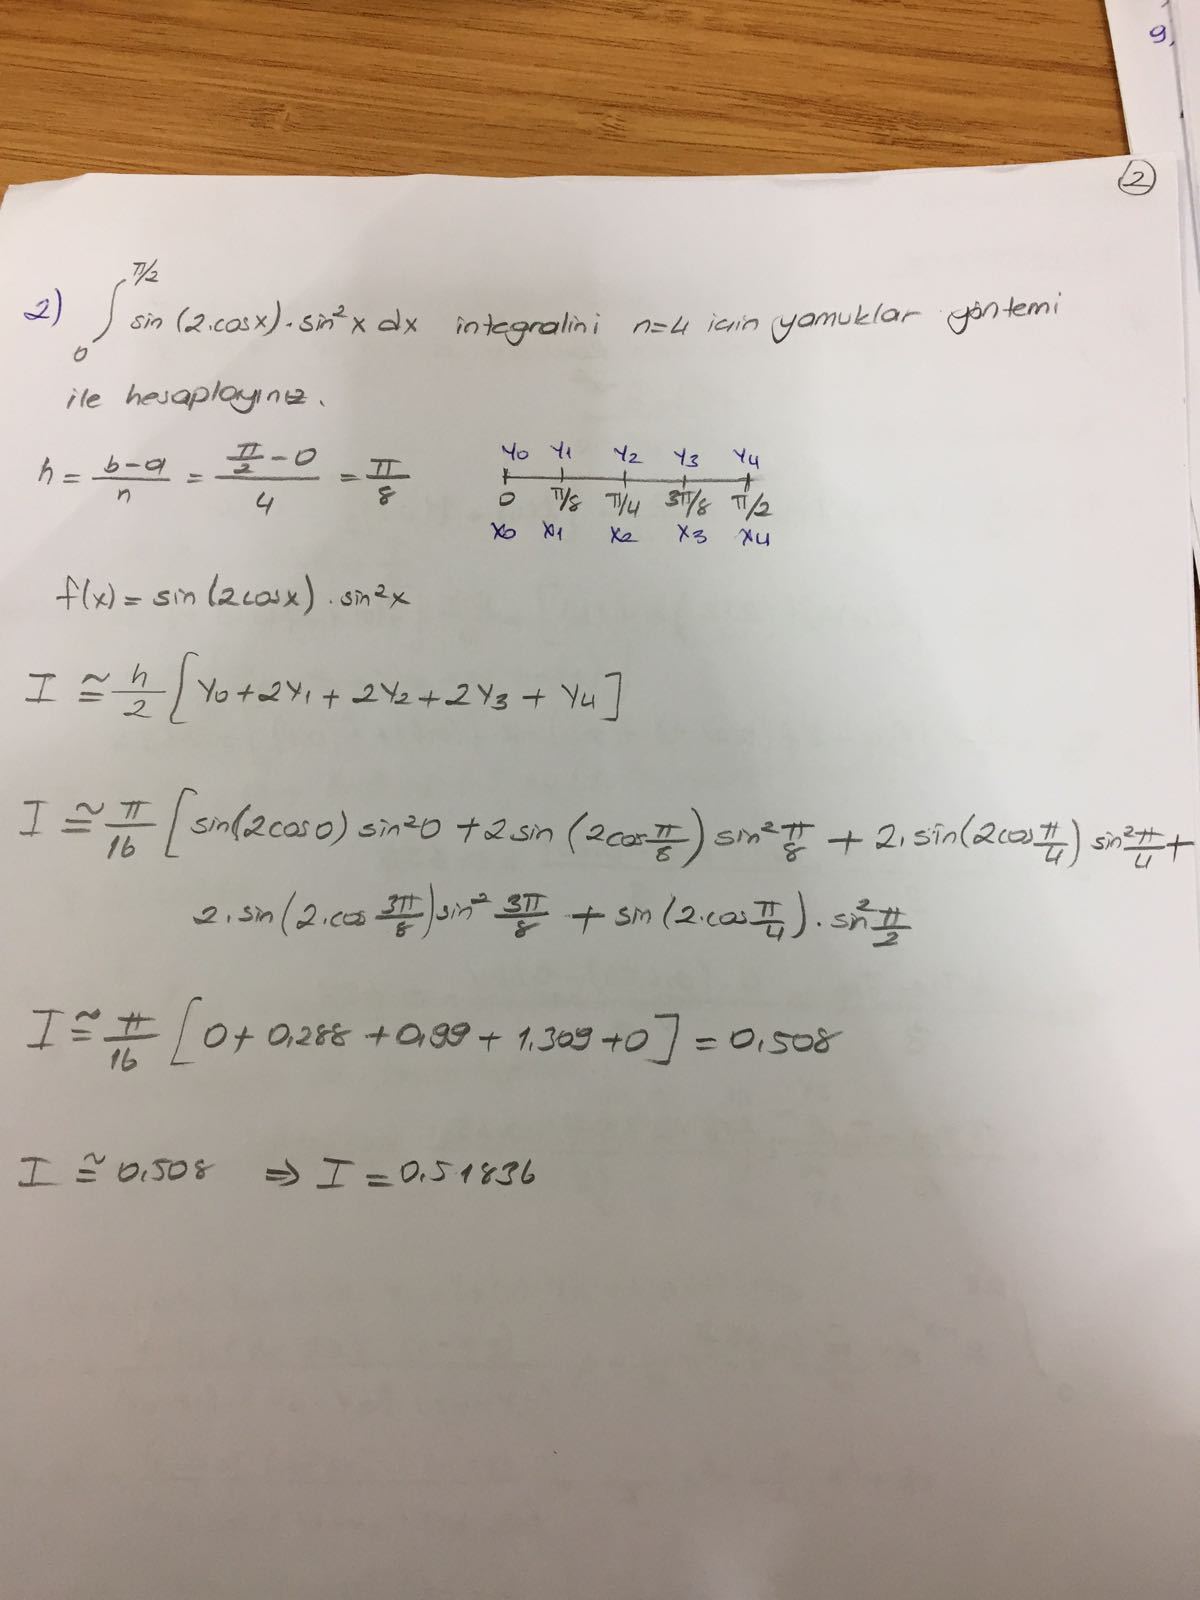 9,
2
2) ∫₀^π/2 sin (2.cosx).sin²x dx integralini n=4 için yamuklar yöntemi
ile hesaplayınız.
h = (b-a)/n = (π/2 - 0)/4 = π/8
y0 y1 y2 y3 y4
0 π/8 π/4 3π/8 π/2
x0 x1 x2 x3 x4
f(x) = sin (2cosx) . sin²x
I ≅ h/2 [y0 + 2y1 + 2y2 + 2y3 + y4]
I ≅ π/16 [sin(2cos0) sin²0 + 2 sin (2cos π/8) sin² π/8 + 2.sin(2cos π/4) sin² π/4 +
2.sin (2.cos 3π/8) sin² 3π/8 + sin (2.cos π/4) . sin² π/2
I ≅ π/16 [0 + 0,288 + 0,99 + 1,309 + 0] = 0,508
I ≅ 0,508 ⇒ I = 0,51836